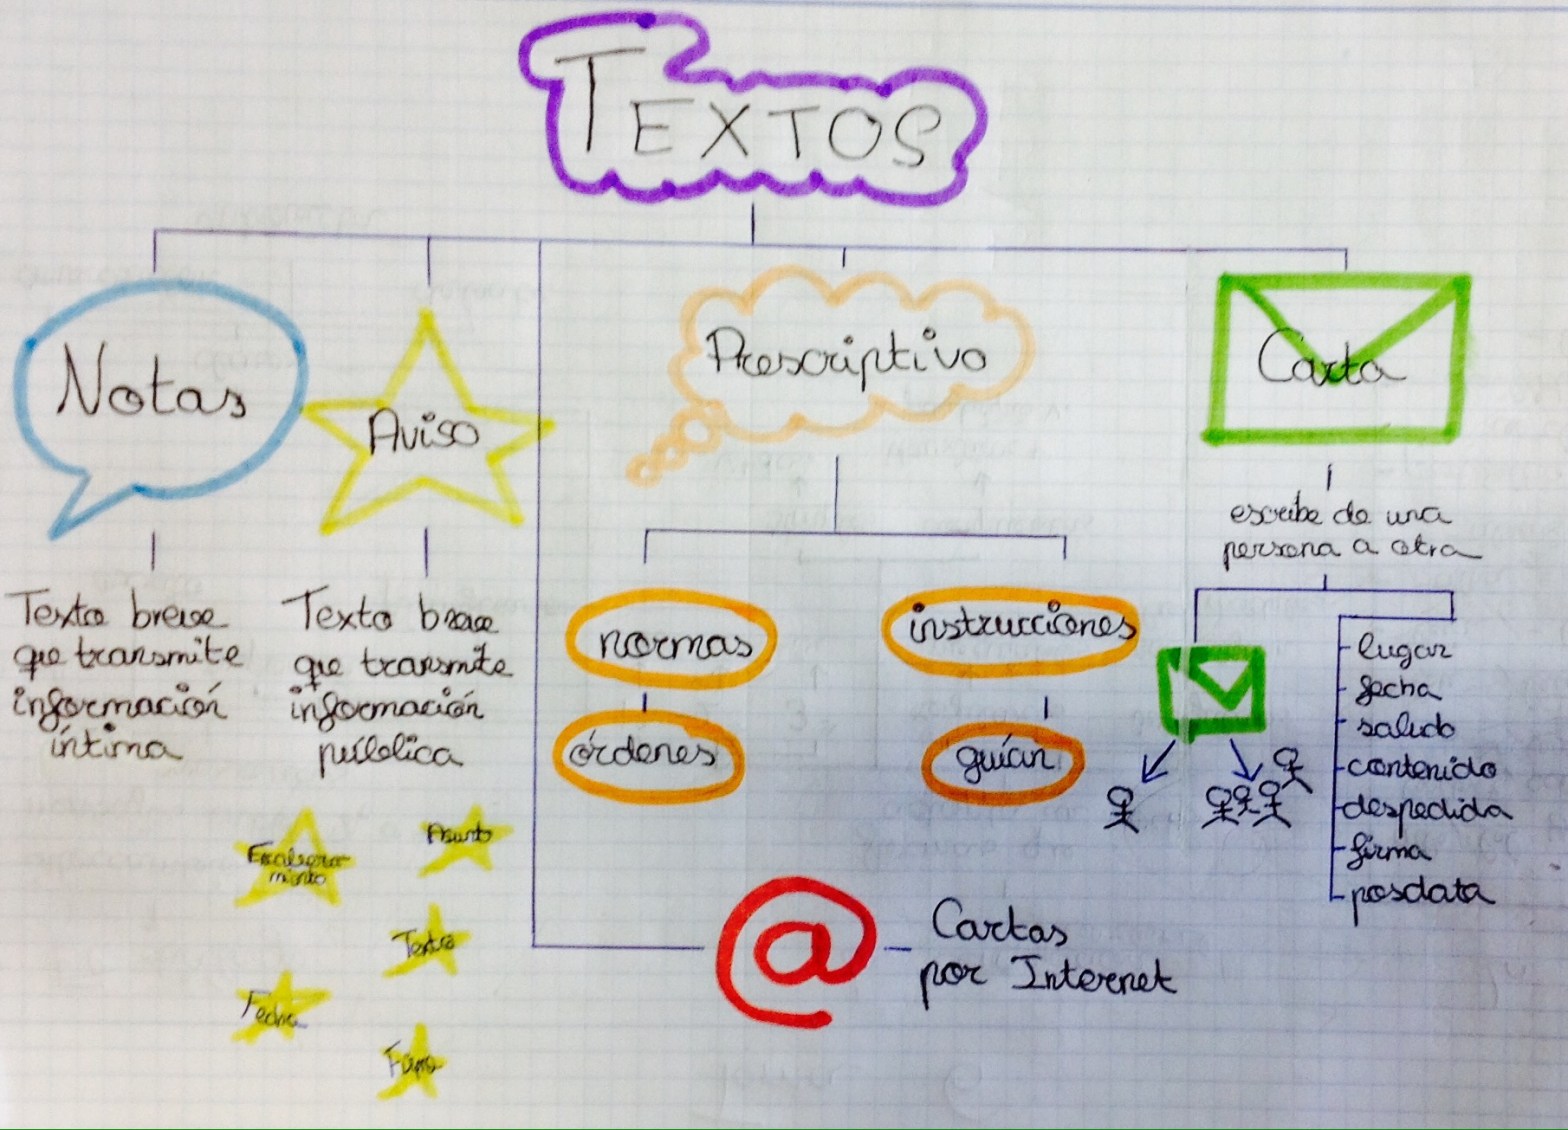 TEXTOS
Notas
Aviso
Prescriptivo
Carta
Texto breve
que transmite
información
íntima
Texto breve
que transmite
información
pública
Asunto
Texto
Fecha
Firma
normas
órdenes
instrucciones
guían
escribe de una
persona a otra
lugar
fecha
saludo
contenido
despedida
firma
posdata
@
Cartas
por Internet